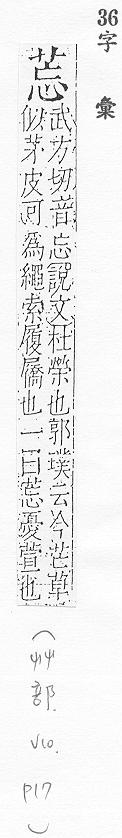 36
字彙
𦬆
武方切音忘說文杜榮也郭璞云今芒草
似茅皮可為繩索履屩也一曰𦬆憂萱也
(艸部. V10. P17)